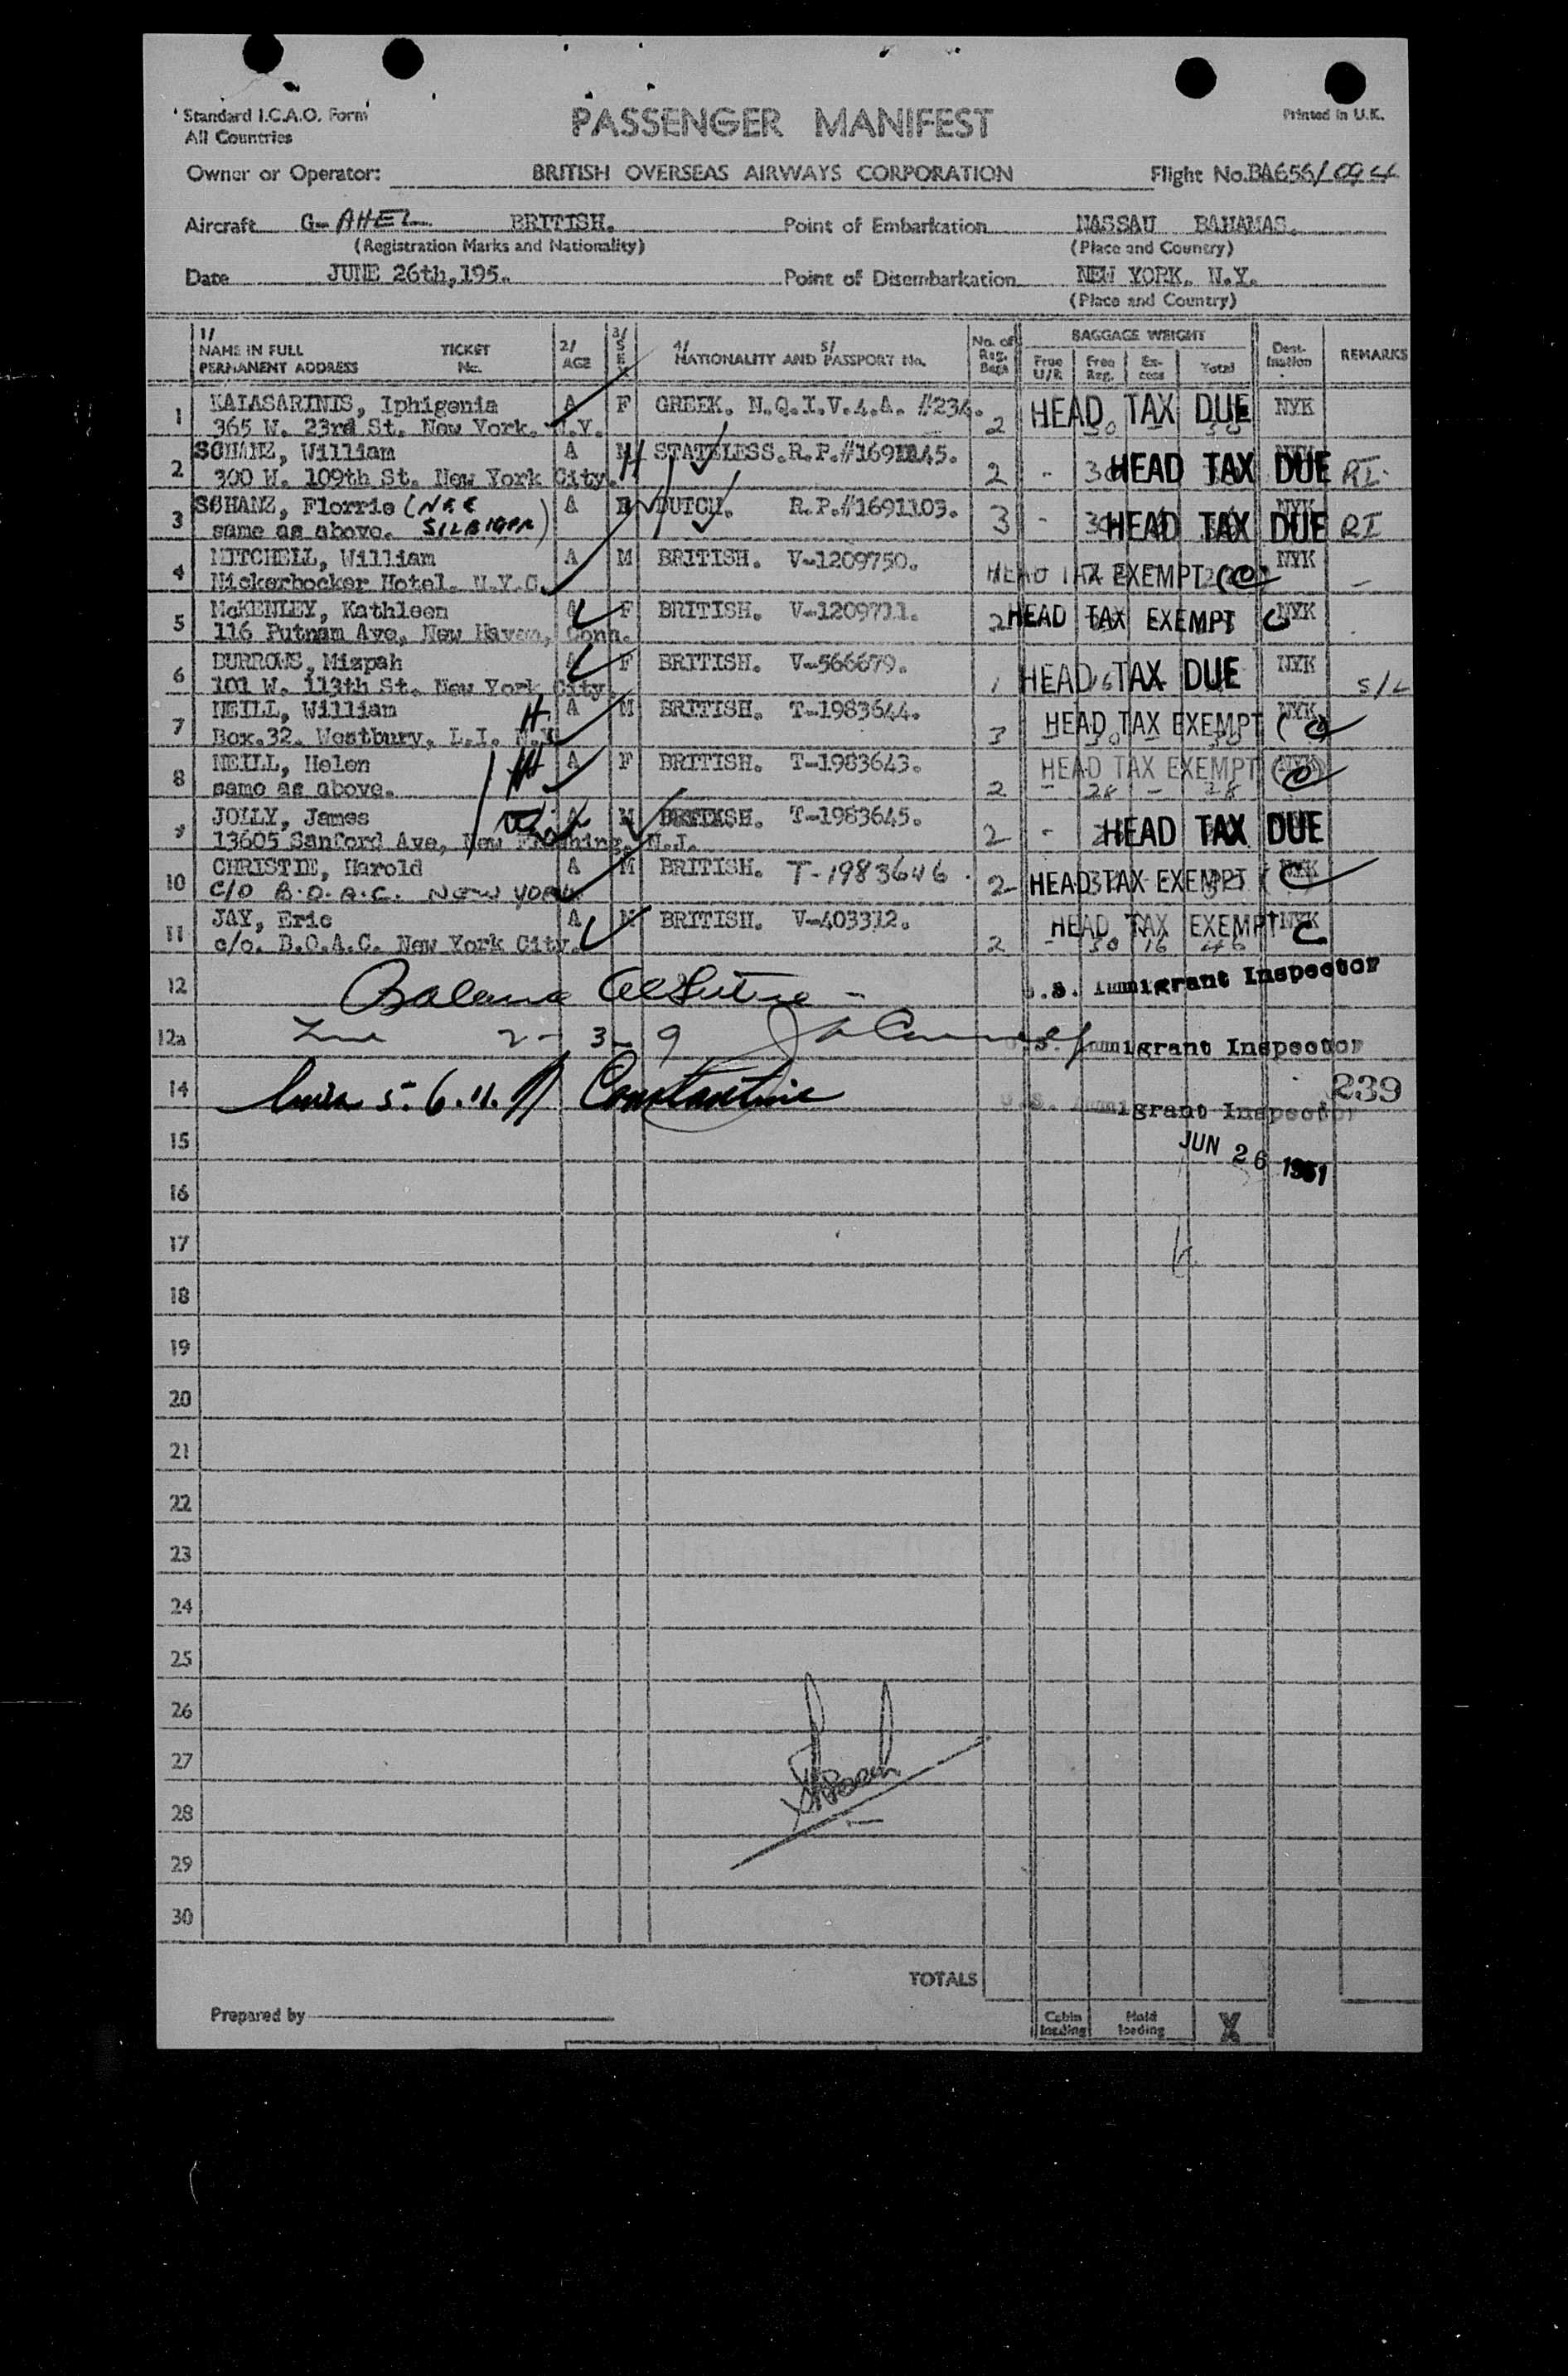 Standard I.C.A.O. Form
All Countries
PASSENGER MANIFEST
Printed in U.K.
Owner or Operator: BRITISH OVERSEAS AIRWAYS CORPORATION Flight No. BA656/094
Aircraft G-AHEL BRITISH. Point of Embarkation NASSAU BAHAMAS.
(Registration Marks and Nationality) (Place and Country)
Date JUNE 26th,195. Point of Disembarkation NEW YORK. N.Y.
(Place and Country)
1/ NAME IN FULL PERMANENT ADDRESS TICKET No. 2/ AGE 3/ SEX 4/ 5/ NATIONALITY AND PASSPORT No. No. of Reg. Bags BAGGAGE WEIGHT Free U/R Free Reg. Excess Total Destination REMARKS
1 KALASARINIS, Iphigenia A F GREEK. N.Q.I.V.4.A. #234. 2 HEAD TAX DUE NYK
365 W. 23rd St. New York. N.Y.
2 SCHANZ, William A M STATELESS. R.P.# 2 - HEAD TAX DUE RI
300 W. 109th St. New York City.
3 SCHANZ, Florrie (NEE A DUTCH. R.P.#1691103. 3 - HEAD TAX DUE RI
same as above.
4 MITCHELL, William A M BRITISH. V-1209750. HEAD TAX EXEMPT (C) NYK
Nickerbocker Hotel. N.Y.C.
5 McKENLEY, Kathleen A F BRITISH. V-1209711. 2 HEAD TAX EXEMPT C NYK
116 Putnam Ave, New Haven, Conn.
6 BURROWS, Mizpah A F BRITISH. V-566679. 1 HEAD TAX DUE NYK S/L
101 W. 113th St. New York City.
7 NEILL, William H A M BRITISH. T-1983644. 3 HEAD TAX EXEMPT (C) NYK
Box.32. Westbury, L.I. N.Y.
8 NEILL, Helen H A F BRITISH. T-1983643. 2 HEAD TAX EXEMPT (C)
same as above. - 28 - 28
9 JOLLY, James A M BRITISH. T-1983645. 2 - HEAD TAX DUE
13605 Sanford Ave, New N.J.
10 CHRISTIE, Harold A M BRITISH. T-1983646. 2 HEAD TAX EXEMPT (C) NYK
C/O B.O.A.C. NEW YORK
11 JAY, Eric A M BRITISH. V-403312. 2 HEAD TAX EXEMPT C NYK
c/o. B.O.A.C. New York City. - 30 16 46
12 U.S. Immigrant Inspector
12a 2- 3- 9 U.S. Immigrant Inspector
14 5. 6. 11. Constantine 239
U.S. Immigrant Inspector
15 JUN 26 1951
16
17
18
19
20
21
22
23
24
25
26
27
28
29
30
TOTALS
Prepared by
Cabin loading Hold loading X